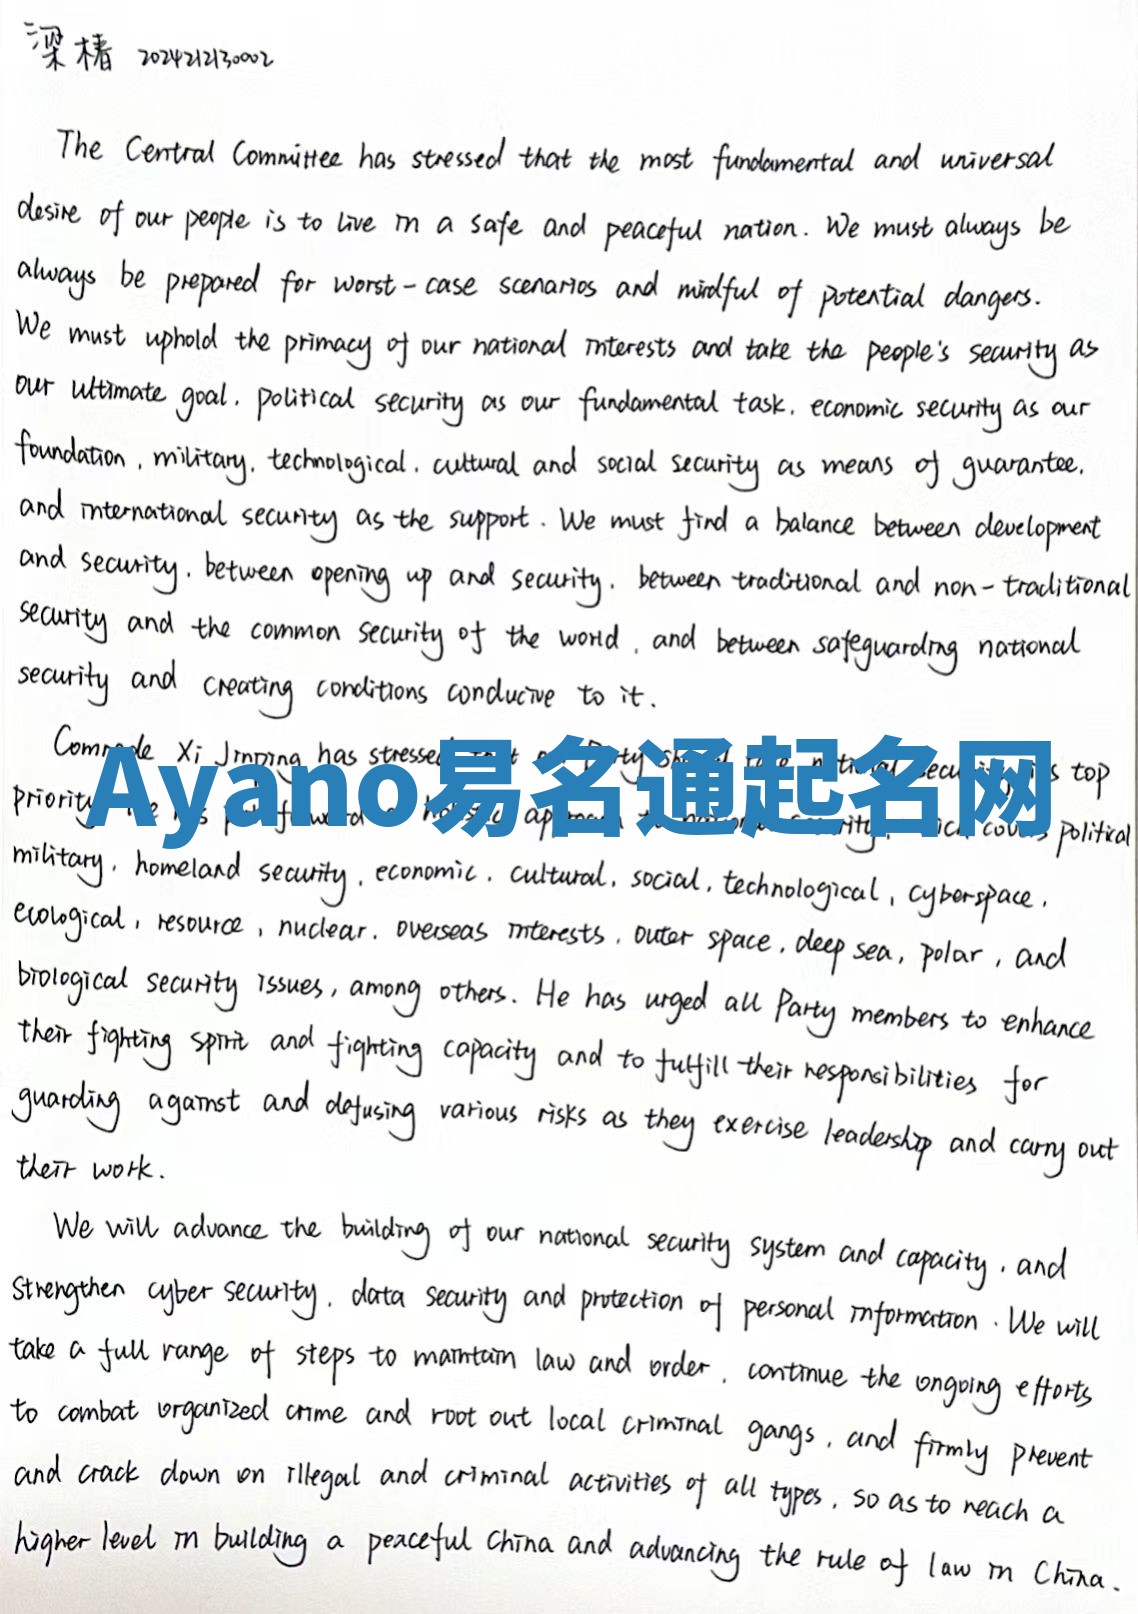 梁椿 2024212130002
The Central Committee has stressed that the most fundamental and universal
desire of our people is to live in a safe and peaceful nation. We must always be
always be prepared for worst-case scenarios and mindful of potential dangers.
We must uphold the primacy of our national interests and take the people's security as
our ultimate goal, political security as our fundamental task, economic security as our
foundation, military, technological, cultural and social security as means of guarantee,
and international security as the support. We must find a balance between development
and security, between opening up and security, between traditional and non-traditional
security and the common security of the world, and between safeguarding national
security and creating conditions conducive to it.
Comrade Xi Jinping has stressed top
Ayano易名通起名网
priority political
military, homeland security, economic, cultural, social, technological, cyberspace,
ecological, resource, nuclear, overseas interests, outer space, deep sea, polar, and
biological security issues, among others. He has urged all Party members to enhance
their fighting spirit and fighting capacity and to fulfill their responsibilities for
guarding against and defusing various risks as they exercise leadership and carry out
their work.
We will advance the building of our national security system and capacity, and
strengthen cyber security, data security and protection of personal information. We will
take a full range of steps to maintain law and order, continue the ongoing efforts
to combat organized crime and root out local criminal gangs, and firmly prevent
and crack down on illegal and criminal activities of all types, so as to reach a
higher level in building a peaceful China and advancing the rule of law in China.